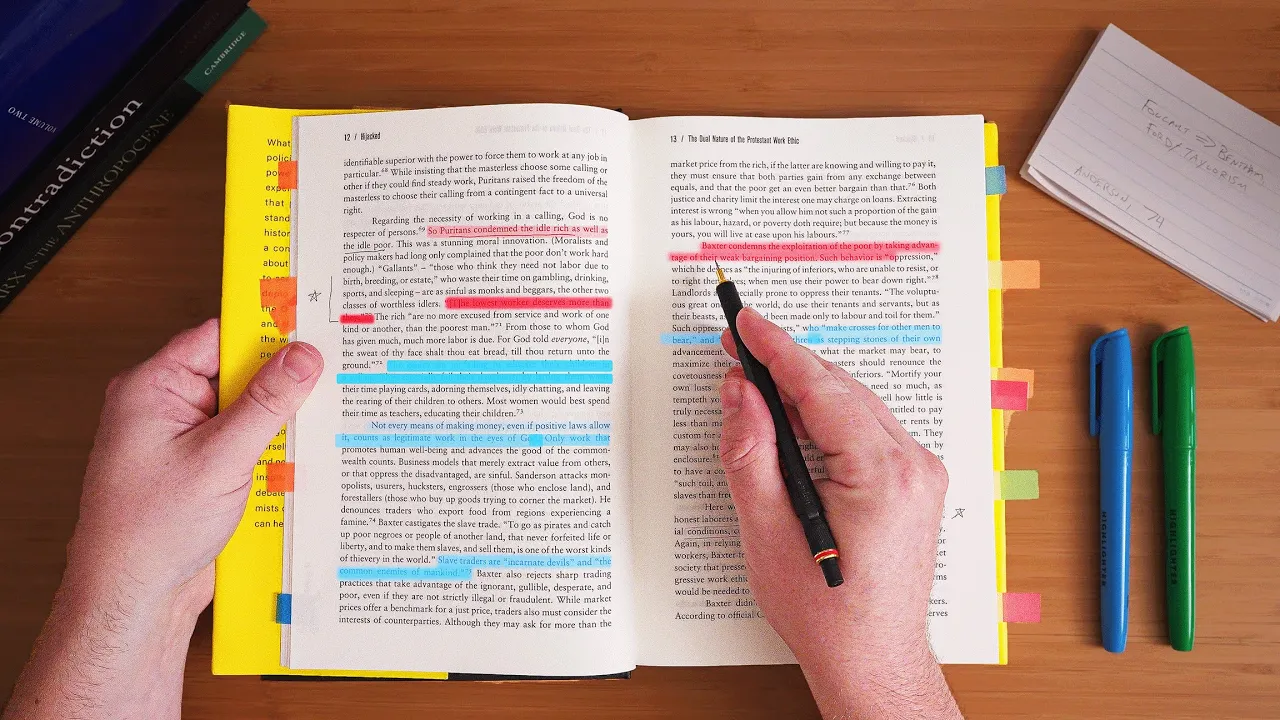 VOLUME TWO
Contradiction
MARX IN THE ANTHROPOCENE
CAMBRIDGE
What
polici
that
stand
histor
a con
about
and
debate
mists
can he
12 / Hijacked
identifiable superior with the power to force them to work at any job in
particular.68 While insisting that the masterless choose some calling or
other if they could find steady work, Puritans raised the freedom of the
masterless to choose their calling from a contingent fact to a universal
right.
Regarding the necessity of working in a calling, God is no
respecter of persons.69 So Puritans condemned the idle rich as well as
the idle poor. This was a stunning moral innovation. (Moralists and
policy makers had long only complained that the poor don't work hard
enough.) “Gallants” – “those who think they need not labor due to
birth, breeding, or estate,” who waste their time on gambling, drinking,
sports, and sleeping – are as sinful as monks and beggars, the other two
classes of worthless idlers. “[T]he lowest worker deserves more than
The rich “are no more excused from service and work of one
kind or another, than the poorest man.”71 From those to whom God
has given much, much more labor is due. For God told everyone, “[i]n
the sweat of thy face shalt thou eat bread, till thou return unto the
ground.”72
their time playing cards, adorning themselves, idly chatting, and leaving
the rearing of their children to others. Most women would best spend
their time as teachers, educating their children.73
Not every means of making money, even if positive laws allow
it, counts as legitimate work in the eyes of God. Only work that
promotes human well-being and advances the good of the common-
wealth counts. Business models that merely extract value from others,
or that oppress the disadvantaged, are sinful. Sanderson attacks mon-
opolists, usurers, hucksters, engrossers (those who enclose land), and
forestallers (those who buy up goods trying to corner the market). He
denounces traders who export food from regions experiencing a
famine.74 Baxter castigates the slave trade. “To go as pirates and catch
up poor negroes or people of another land, that never forfeited life or
liberty, and to make them slaves, and sell them, is one of the worst kinds
of thievery in the world.” Slave traders are “incarnate devils” and “the
common enemies of mankind.”75 Baxter also rejects sharp trading
practices that take advantage of the ignorant, gullible, desperate, and
poor, even if they are not strictly illegal or fraudulent. While market
prices offer a benchmark for a just price, traders also must consider the
interests of counterparties. Although they may ask for more than the
13 / The Dual Nature of the Protestant Work Ethic
market price from the rich, if the latter are knowing and willing to pay it,
they must ensure that both parties gain from any exchange between
equals, and that the poor get an even better bargain than that.76 Both
justice and charity limit the interest one may charge on loans. Extracting
interest is wrong “when you allow him not such a proportion of the gain
as his labour, hazard, or poverty doth require; but because the money is
yours, you will live at ease upon his labours.”77
Baxter condemns the exploitation of the poor by taking advan-
tage of their weak bargaining position. Such behavior is “oppression,”
which he defines as “the injuring of inferiors, who are unable to resist, or
to right themselves; when men use their power to bear down right.”78
Landlords are especially prone to oppress tenants. “The voluptu-
ous great ones of the world, do use their tenants and servants, but as
their beasts, as had been made only to labour and toil for them.”
Such oppressors who “make crosses for other men to
bear,” and as stepping stones of their own
advancement. what the market may bear, to
maximize their masters should renounce the
covetousness inferiors. “Mortify your
own lusts need so much, as
tempteth you well how little is
truly necessary entitled to pay
less than rents by
custom for They
may also
enclosure.
to have a
“such toil, and
slaves than
Here
honest laborers
ial conditions,
Again, in relying
workers, Baxter
society that
gressive work
would be needed to
Baxter didn't
According to official serves
Foucault ⇒ Bentham
Ford/Taylorism
Anderson, 74
HIGHLIGHTER
HIGHLIGHTER